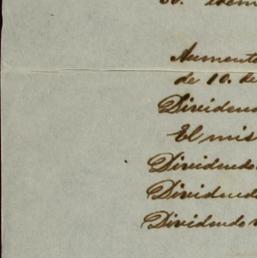 30. idem
Aumento
de 10. de
Dividendo
El mis
Dividendo
Dividendo
Dividendo